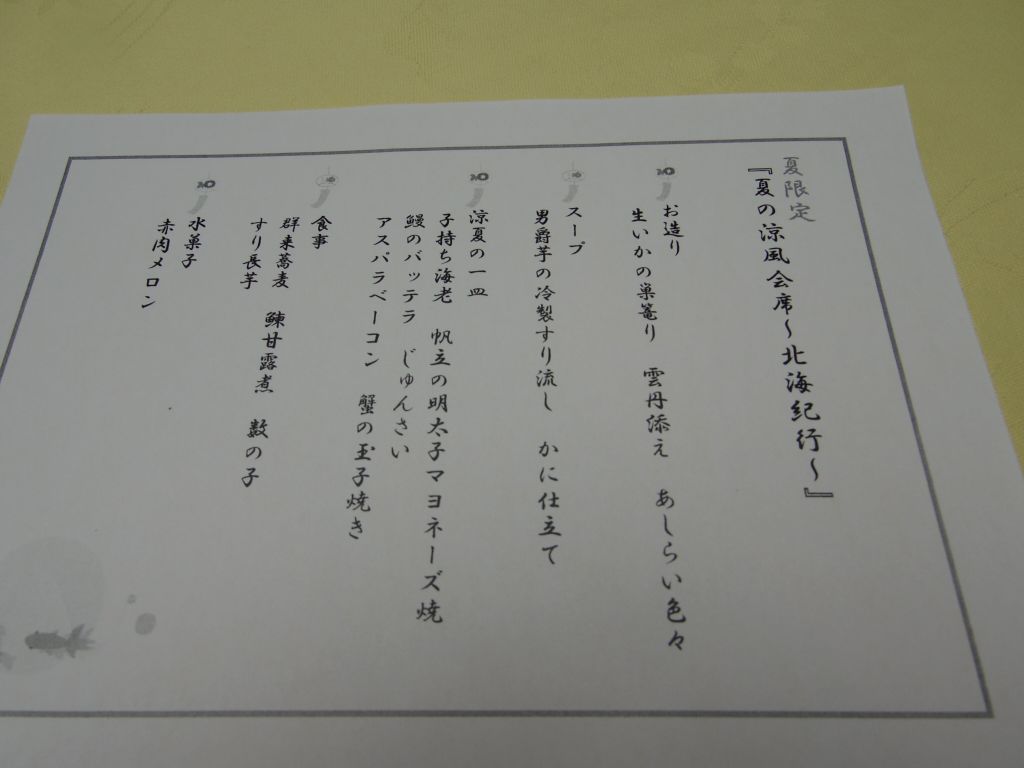 夏限定
『夏の涼風会席～北海紀行～』
お造り
生いかの巣篭り　雲丹添え　あしらい色々
スープ
男爵芋の冷製すり流し　かに仕立て
涼夏の一皿
子持ち海老　帆立の明太子マヨネーズ焼
鰻のバッテラ　じゅんさい
アスパラベーコン　蟹の玉子焼き
食事
群来蕎麦　鰊甘露煮　数の子
すり長芋
水菓子
赤肉メロン